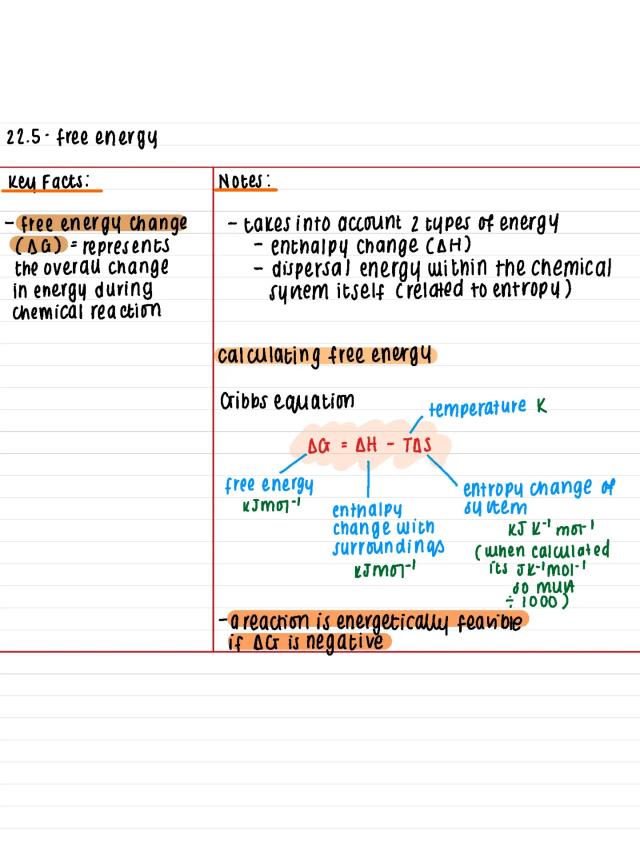 22.5 - free energy
Key Facts:
- free energy change
(ΔG) = represents
the overall change
in energy during
chemical reaction
Notes:
- takes into account 2 types of energy
- enthalpy change (ΔH)
- dispersal energy within the chemical
system itself (related to entropy)
calculating free energy
Gibbs equation
temperature K
ΔG = ΔH - TΔS
free energy
KJmol⁻¹
enthalpy
change with
surroundings
KJmol⁻¹
entropy change of
system
KJ K⁻¹ mol⁻¹
(when calculated
its JK⁻¹mol⁻¹
so must
÷ 1000)
- a reaction is energetically feasible
if ΔG is negative